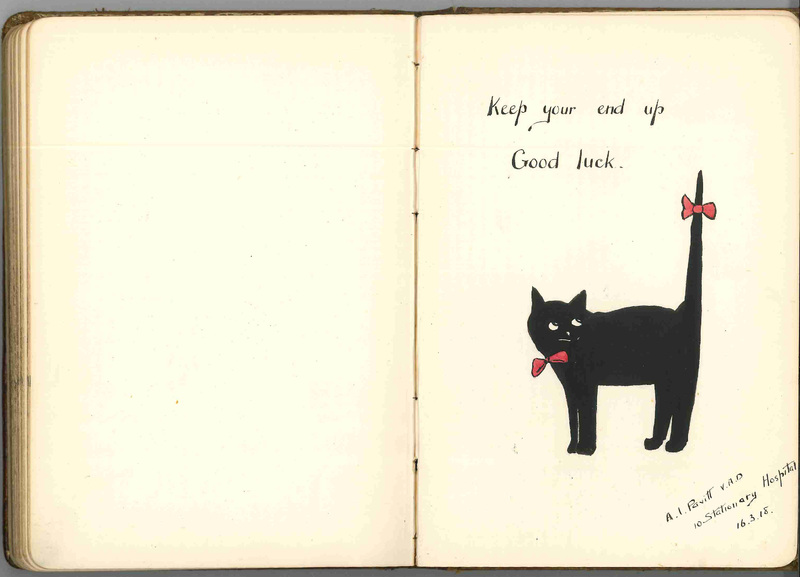 Keep your end up
Good luck.
A.I. Pavitt V.A.D
10 Stationary Hospital
16.3.18.